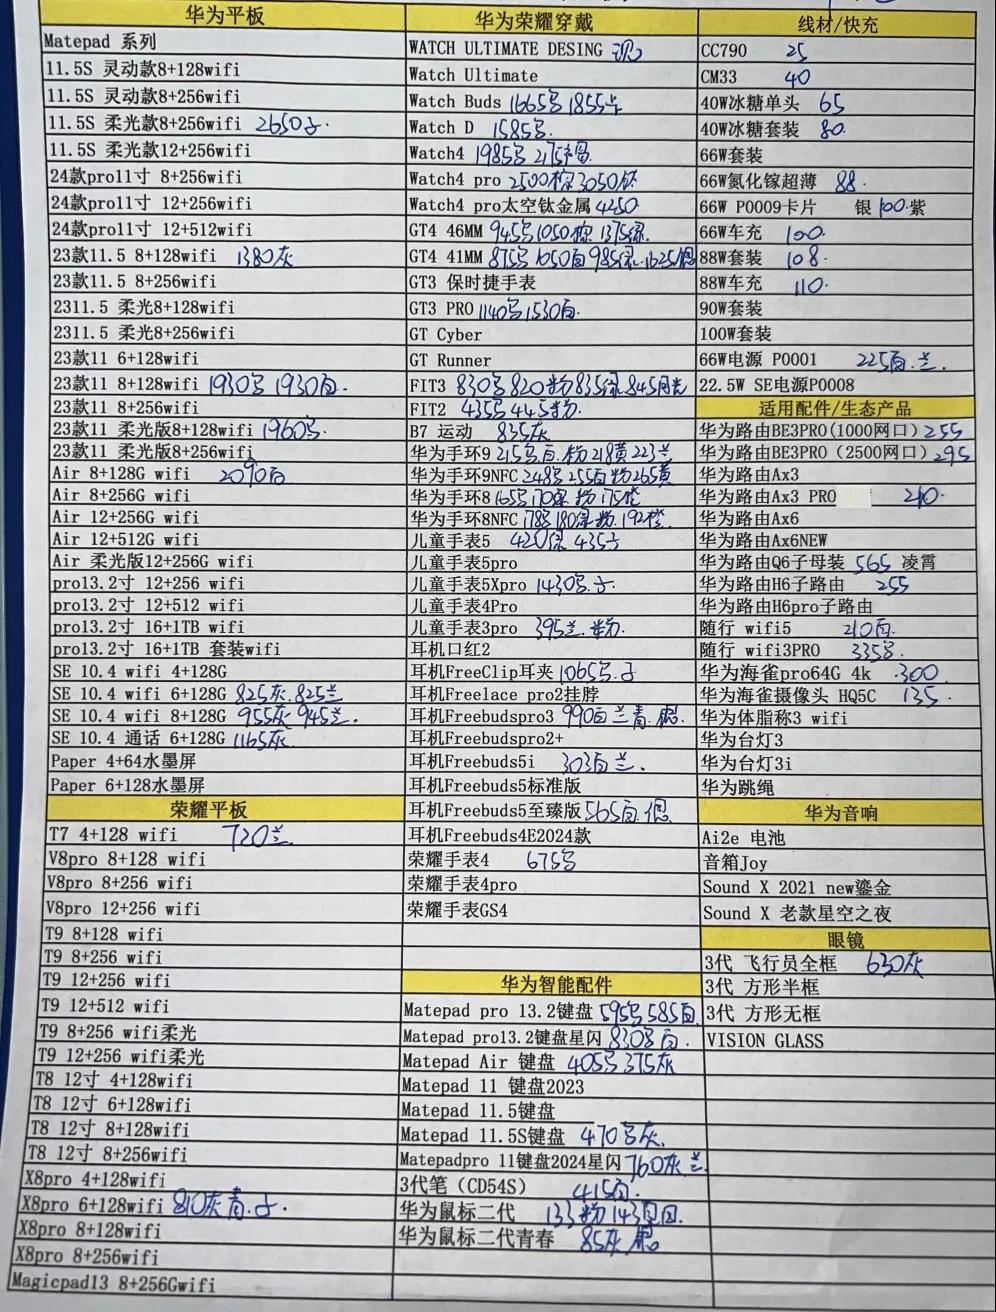 华为平板
Matepad 系列
11.5S 灵动款8+128wifi
11.5S 灵动款8+256wifi
11.5S 柔光款8+256wifi 2650
11.5S 柔光款12+256wifi
24款pro11寸 8+256wifi
24款pro11寸 12+256wifi
24款pro11寸 12+512wifi
23款11.5 8+128wifi 1380灰
23款11.5 8+256wifi
2311.5 柔光8+128wifi
2311.5 柔光8+256wifi
23款11 6+128wifi
23款11 8+128wifi 1930 1930
23款11 8+256wifi
23款11 柔光版8+128wifi 1960
23款11 柔光版8+256wifi
Air 8+128G wifi 2090
Air 8+256G wifi
Air 12+256G wifi
Air 12+512G wifi
Air 柔光版12+256G wifi
pro13.2寸 12+256 wifi
pro13.2寸 12+512 wifi
pro13.2寸 16+1TB wifi
pro13.2寸 16+1TB 套装wifi
SE 10.4 wifi 4+128G
SE 10.4 wifi 6+128G 825灰.825兰
SE 10.4 wifi 8+128G 955灰 945兰.
SE 10.4 通话 6+128G 1165灰
Paper 4+64水墨屏
Paper 6+128水墨屏
荣耀平板
T7 4+128 wifi 720兰
V8pro 8+128 wifi
V8pro 8+256 wifi
V8pro 12+256 wifi
T9 8+128 wifi
T9 8+256 wifi
T9 12+256 wifi
T9 12+512 wifi
T9 8+256 wifi柔光
T9 12+256 wifi柔光
T8 12寸 4+128wifi
T8 12寸 6+128wifi
T8 12寸 8+128wifi
T8 12寸 8+256wifi
X8pro 4+128wifi
X8pro 6+128wifi 810灰青.
X8pro 8+128wifi
X8pro 8+256wifi
Magicpad13 8+256Gwifi
华为荣耀穿戴
WATCH ULTIMATE DESING
Watch Ultimate
Watch Buds 1665 1855
Watch D 1585
Watch4 1985 2175
Watch4 pro 2500棕3050钛
Watch4 pro太空钛金属 4250
GT4 46MM 945 1050棕 1375绿.
GT4 41MM 875 1050 985绿.1625
GT3 保时捷手表
GT3 PRO 1140 1530
GT Cyber
GT Runner
FIT3 830 820粉835绿.845
FIT2 435 445粉.
B7 运动 835灰
华为手环9 215 粉218黄 223兰
华为手环9NFC 248 255 粉265黄
华为手环8 165 170绿 粉 175橙
华为手环8NFC 178 180绿 粉.192橙
儿童手表5 420绿 435
儿童手表5pro
儿童手表5Xpro 1430
儿童手表4Pro
儿童手表3pro 395兰.粉.
耳机口红2
耳机FreeClip耳夹 1065
耳机Freelace pro2挂脖
耳机Freebudspro3 990 兰青.银
耳机Freebudspro2+
耳机Freebuds5i 303 兰.
耳机Freebuds5标准版
耳机Freebuds5至臻版 565 银
耳机Freebuds4E2024款
荣耀手表4 675
荣耀手表4pro
荣耀手表GS4
华为智能配件
Matepad pro 13.2键盘 595 585
Matepad pro13.2键盘星闪 830
Matepad Air 键盘 405 375灰
Matepad 11 键盘2023
Matepad 11.5键盘
Matepad 11.5S键盘 470 灰.
Matepadpro 11键盘2024星闪 760灰 兰.
3代笔（CD54S） 415
华为鼠标二代 133粉 143
华为鼠标二代青春 85灰
线材/快充
CC790 25
CM33 40
40W冰糖单头 65
40W冰糖套装 80.
66W套装
66W氮化镓超薄 88.
66W P0009卡片 银 100.紫
66W车充 100.
88W套装 108.
88W车充 110.
90W套装
100W套装
66W电源 P0001 225 兰.
22.5W SE电源P0008
适用配件/生态产品
华为路由BE3PRO(1000网口) 255
华为路由BE3PRO（2500网口) 295
华为路由Ax3
华为路由Ax3 PRO 210.
华为路由Ax6
华为路由Ax6NEW
华为路由Q6子母装 565 凌霄
华为路由H6子路由 255
华为路由H6pro子路由
随行 wifi5 210
随行 wifi3PRO 335
华为海雀pro64G 4k .300
华为海雀摄像头 HQ5C 135.
华为体脂称3 wifi
华为台灯3
华为台灯3i
华为跳绳
华为音响
Ai2e 电池
音箱Joy
Sound X 2021 new鎏金
Sound X 老款星空之夜
眼镜
3代 飞行员全框 630灰
3代 方形半框
3代 方形无框
VISION GLASS